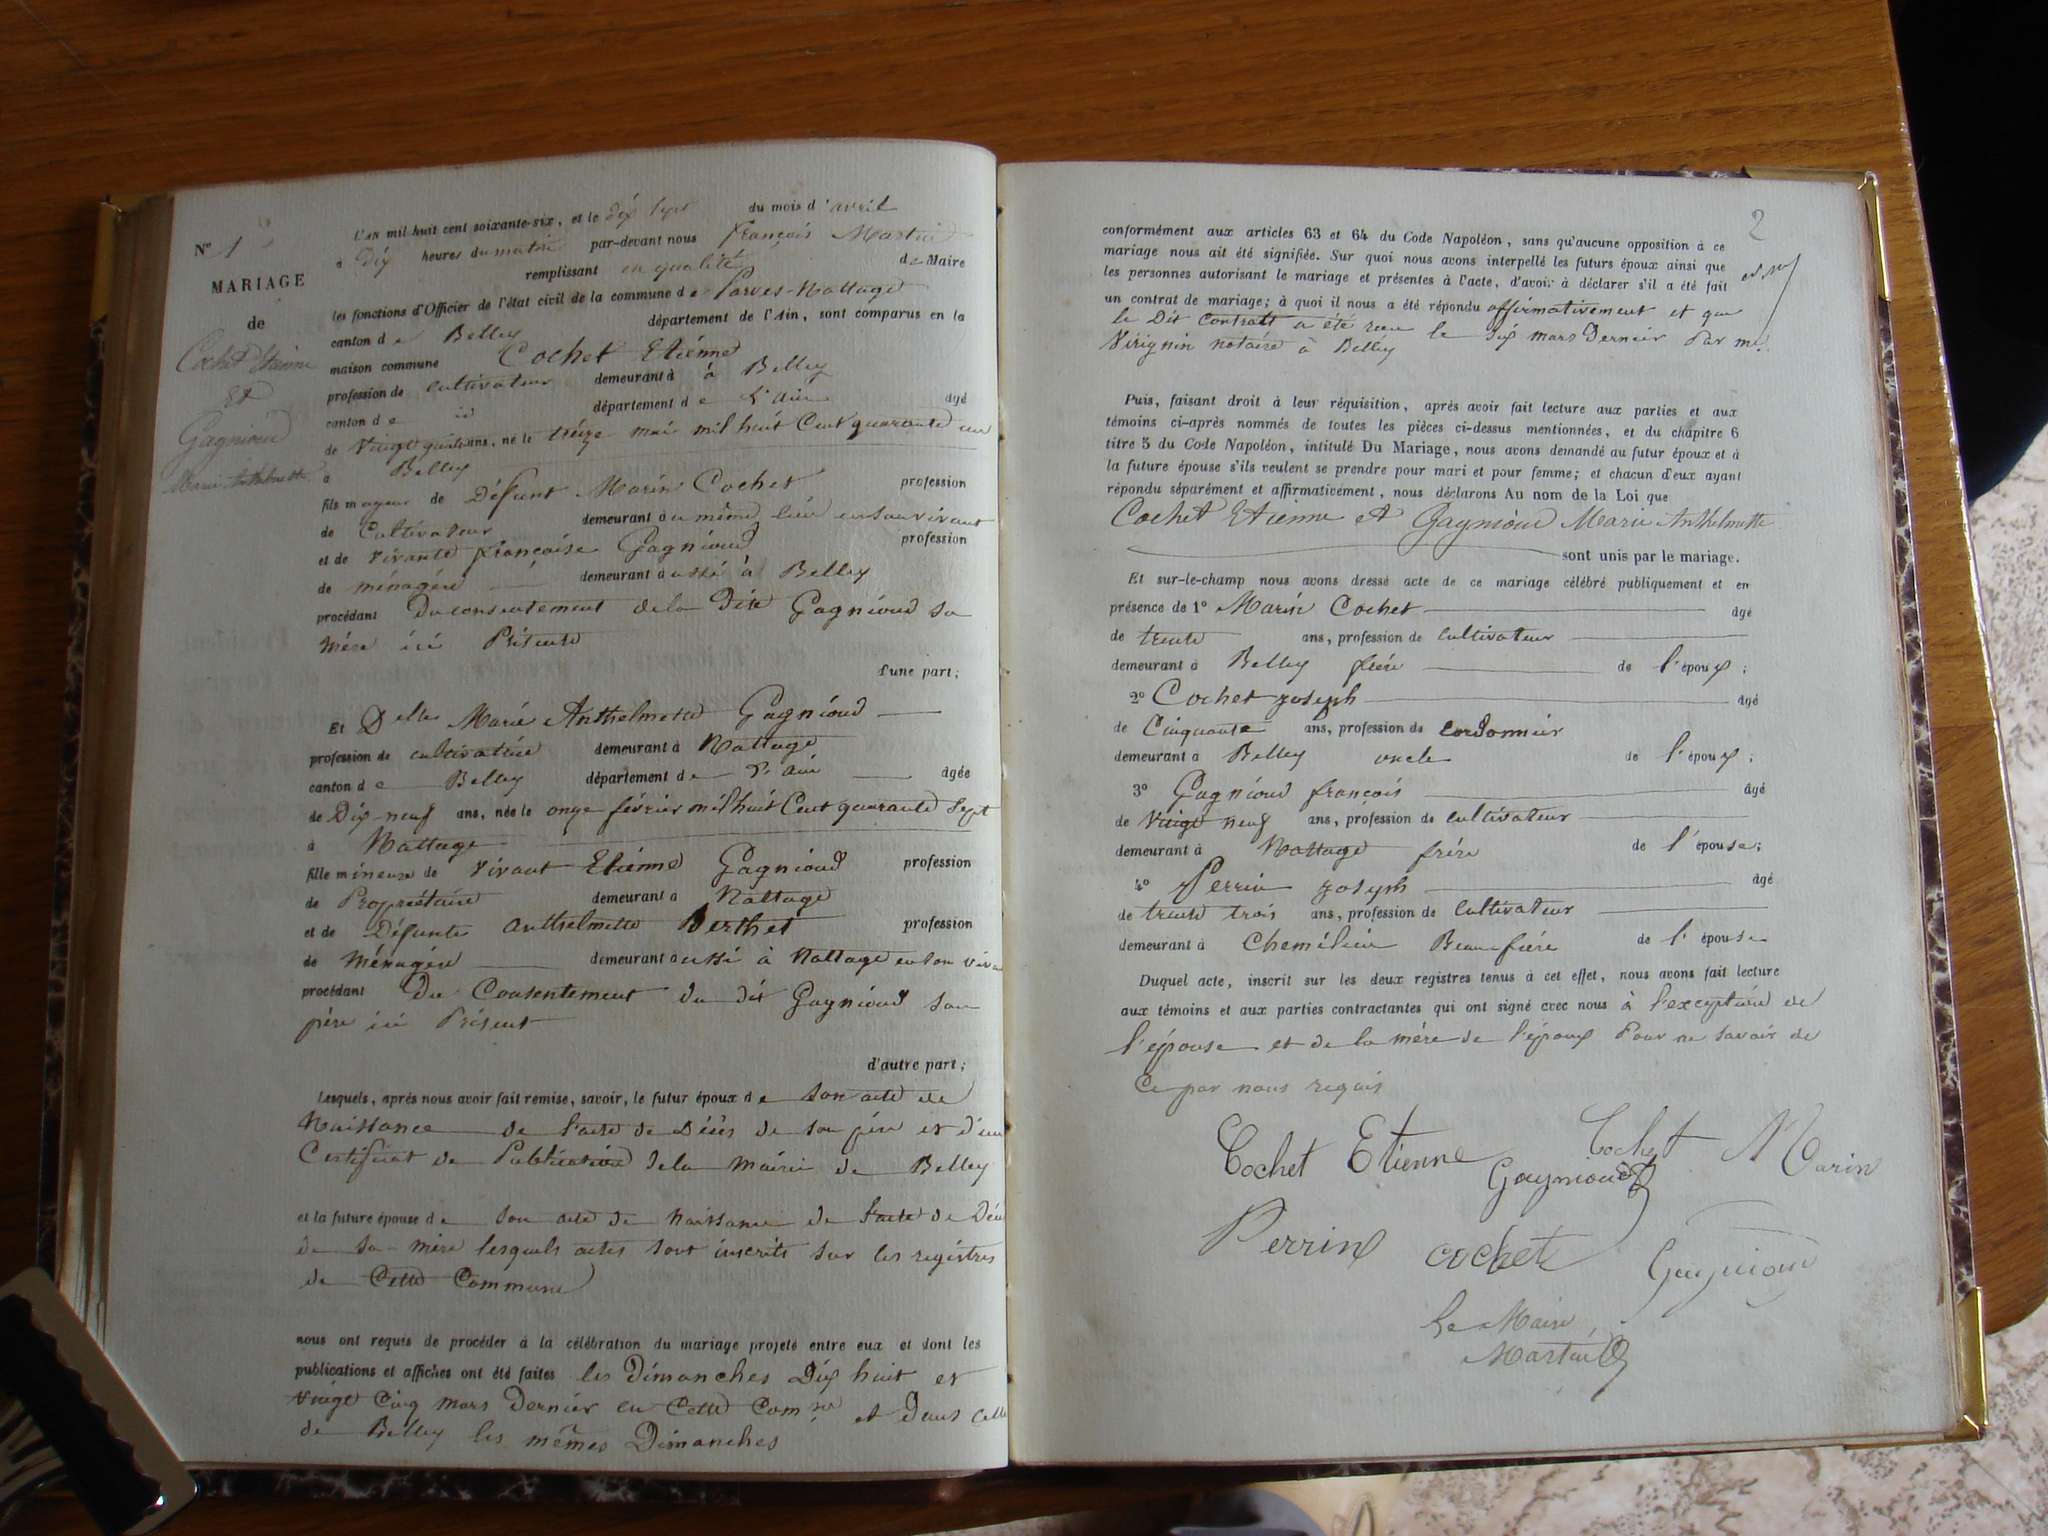 N° 1
MARIAGE
de
Cochet Etienne
et
Gagnioud
Marie Anthelmette
L'AN mil huit cent soixante-six, et le dix sept du mois d'avril
à dix heures du matin par-devant nous françois Martin
remplissant en qualité de Maire
les fonctions d'Officier de l'état civil de la commune de Parves-Nattage
canton de Belley département de l'Ain, sont comparus en la
maison commune Cochet Etiénne
profession de cultivateur demeurant à à Belley
canton de id département de L'Ain âgé
de vingt quatre ans, né le treize mai mil huit Cent quarante un
à Belley
fils majeur de Défunt Marin Cochet profession
de Cultivateur demeurant au même lieu en son vivant
et de vivante françoise Gagnioud profession
de ménagère demeurant aussi à Belley
procédant du consentement de la dite Gagnioud sa
mère ici Présente
d'une part;
Et Delle Marie Anthelmette Gagnioud
profession de cultivatrice demeurant à Nattage
canton de Belley département de L'Ain âgée
de Dix-neuf ans, née le onze février mil huit Cent quarante Sept
à Nattage
fille mineure de vivant Etiénne Gagnioud profession
de Propriétaire demeurant à Nattage
et de Défunte anthelmette Berthet profession
de Ménagère demeurant aussi à Nattage en son viva
procédant Du Consentement du dit Gagnioud son
père ici Présent
d'autre part;
Lesquels, après nous avoir fait remise, savoir, le futur époux de Son acte de
Naissance de l'acte de Décès de son père et d'un
Certificat de Publication de la Mairie de Belley
et la future épouse de son acte de naissance de l'acte de Décè
de sa mère lesquels actes sont inscrits sur les registres
de Cette Commune
nous ont requis de procéder à la célébration du mariage projeté entre eux et dont les
publications et affiches ont été faites les Dimanches Dix huit et
vingt Cinq mars Dernier en Cette Comne et dans celle
de Belley les mêmes Dimanches
2
conformément aux articles 63 et 64 du Code Napoléon, sans qu'aucune opposition à ce
mariage nous ait été signifiée. Sur quoi nous avons interpellé les futurs époux ainsi que
les personnes autorisant le mariage et présentes à l'acte, d'avoir à déclarer s'il a été fait
un contrat de mariage; à quoi il nous a été répondu affirmativement et que
le Dit Contrat a été recu le dix mars Dernier Par me
Virignin notaire à Belley
Puis, faisant droit à leur réquisition, après avoir fait lecture aux parties et aux
témoins ci-après nommés de toutes les pièces ci-dessus mentionnées, et du chapitre 6
titre 5 du Code Napoléon, intitulé Du Mariage, nous avons demandé au futur époux et à
la future épouse s'ils veulent se prendre pour mari et pour femme; et chacun d'eux ayant
répondu séparément et affirmativement, nous déclarons Au nom de la Loi que
Cochet Etienne et Gagnioud Marie Anthelmette
sont unis par le mariage.
Et sur-le-champ nous avons dressé acte de ce mariage célébré publiquement et en
présence de 1° Marin Cochet âgé
de trente ans, profession de cultivateur
demeurant à Belley frère de l'époux;
2° Cochet joseph âgé
de Cinquante ans, profession de cordonnier
demeurant à Belley oncle de l'époux;
3° Gagnioud françois âgé
de vingt neuf ans, profession de cultivateur
demeurant à Nattage frère de l'épouse;
4° Perrin joseph âgé
de trente trois ans, profession de Cultivateur
demeurant à Chemilieu Beau-frère de l'épouse
Duquel acte, inscrit sur les deux registres tenus à cet effet, nous avons fait lecture
aux témoins et aux parties contractantes qui ont signé avec nous à l'exception de
l'épouse et de la mère de l'époux Pour ne savoir de
Ce par nous requis
Cochet Etienne Cochet Marin
Gagnioud
Perrin cochet Gagnioud
Le Maire
Martin